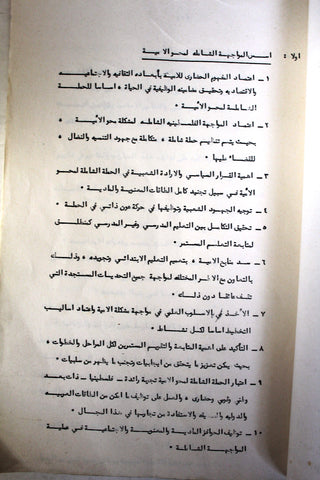 اولا : اسس المواجهة الشاملة لمحو الامية
١ – اعتماد المفهوم الحضارى للامية بأبعاده الثقافيه والاجتماعيه
والاقتصاديه وتحقيق مضامينه الوظيفية في الحياة • اساسا للخطة
الشاملة لمحو الأمية •
٢ – اعتماد المواجهة الفلسطينيه الشامله لمشكلة محو الأمية •
بحيث يتم تصميم خطة شاملة متكاملة مع جهود التنميه والنضال
للقضاء عليها •
٣ – اهمية القرار السياسي والارادة الشعبية في الخطة الشاملة لمحو
الأمية في سبيل تجنيد كامل الطاقات المعنوية والمادية •
٤ – توجيه الجهود الشعبية وتوظيفها في حركة عون ذاتي في الخطة •
٥ – تحقيق التكامل بين التعليم المدرسي وغير المدرسي كمنطلق
لمتابعة التعليم المستمر •
٦ – سد منابع الامية • بتعميم التعليم الابتدائي وتجويده • وذلك
بالتعاون مع الاطر المختلفه لمواجهة جميع التحديات المستجدة التي
تقف عائقا دون ذلك •
٧ – الأخذ في الاسلوب العلمي في مواجهة مشكلة الامية واعتماد اساليب
التخطيط اساسا لكل نشاط •
٨ – التأكيد على اهمية المتابعة والتقييم المستمرين لكل المراحل والخطوات •
بحيث يمكن تعزيز ما يتحقق من ايجابيات وتجنب ما يظهر من سلبيات •
٩ – اعتبار الخطة الشاملة لمحو الامية تجربة رائدة – فلسطينيا – ذات بعد
وطني وقومي وحضارى • والعمل على توظيف ما امكن من الطاقات العربيه
والدوليه والاستفادة من تجاربها في هذا المجال •
١٠ – توظيف الحوافز المادية والمعنوية والاجتماعية في عملية
المواجهة الشاملة •